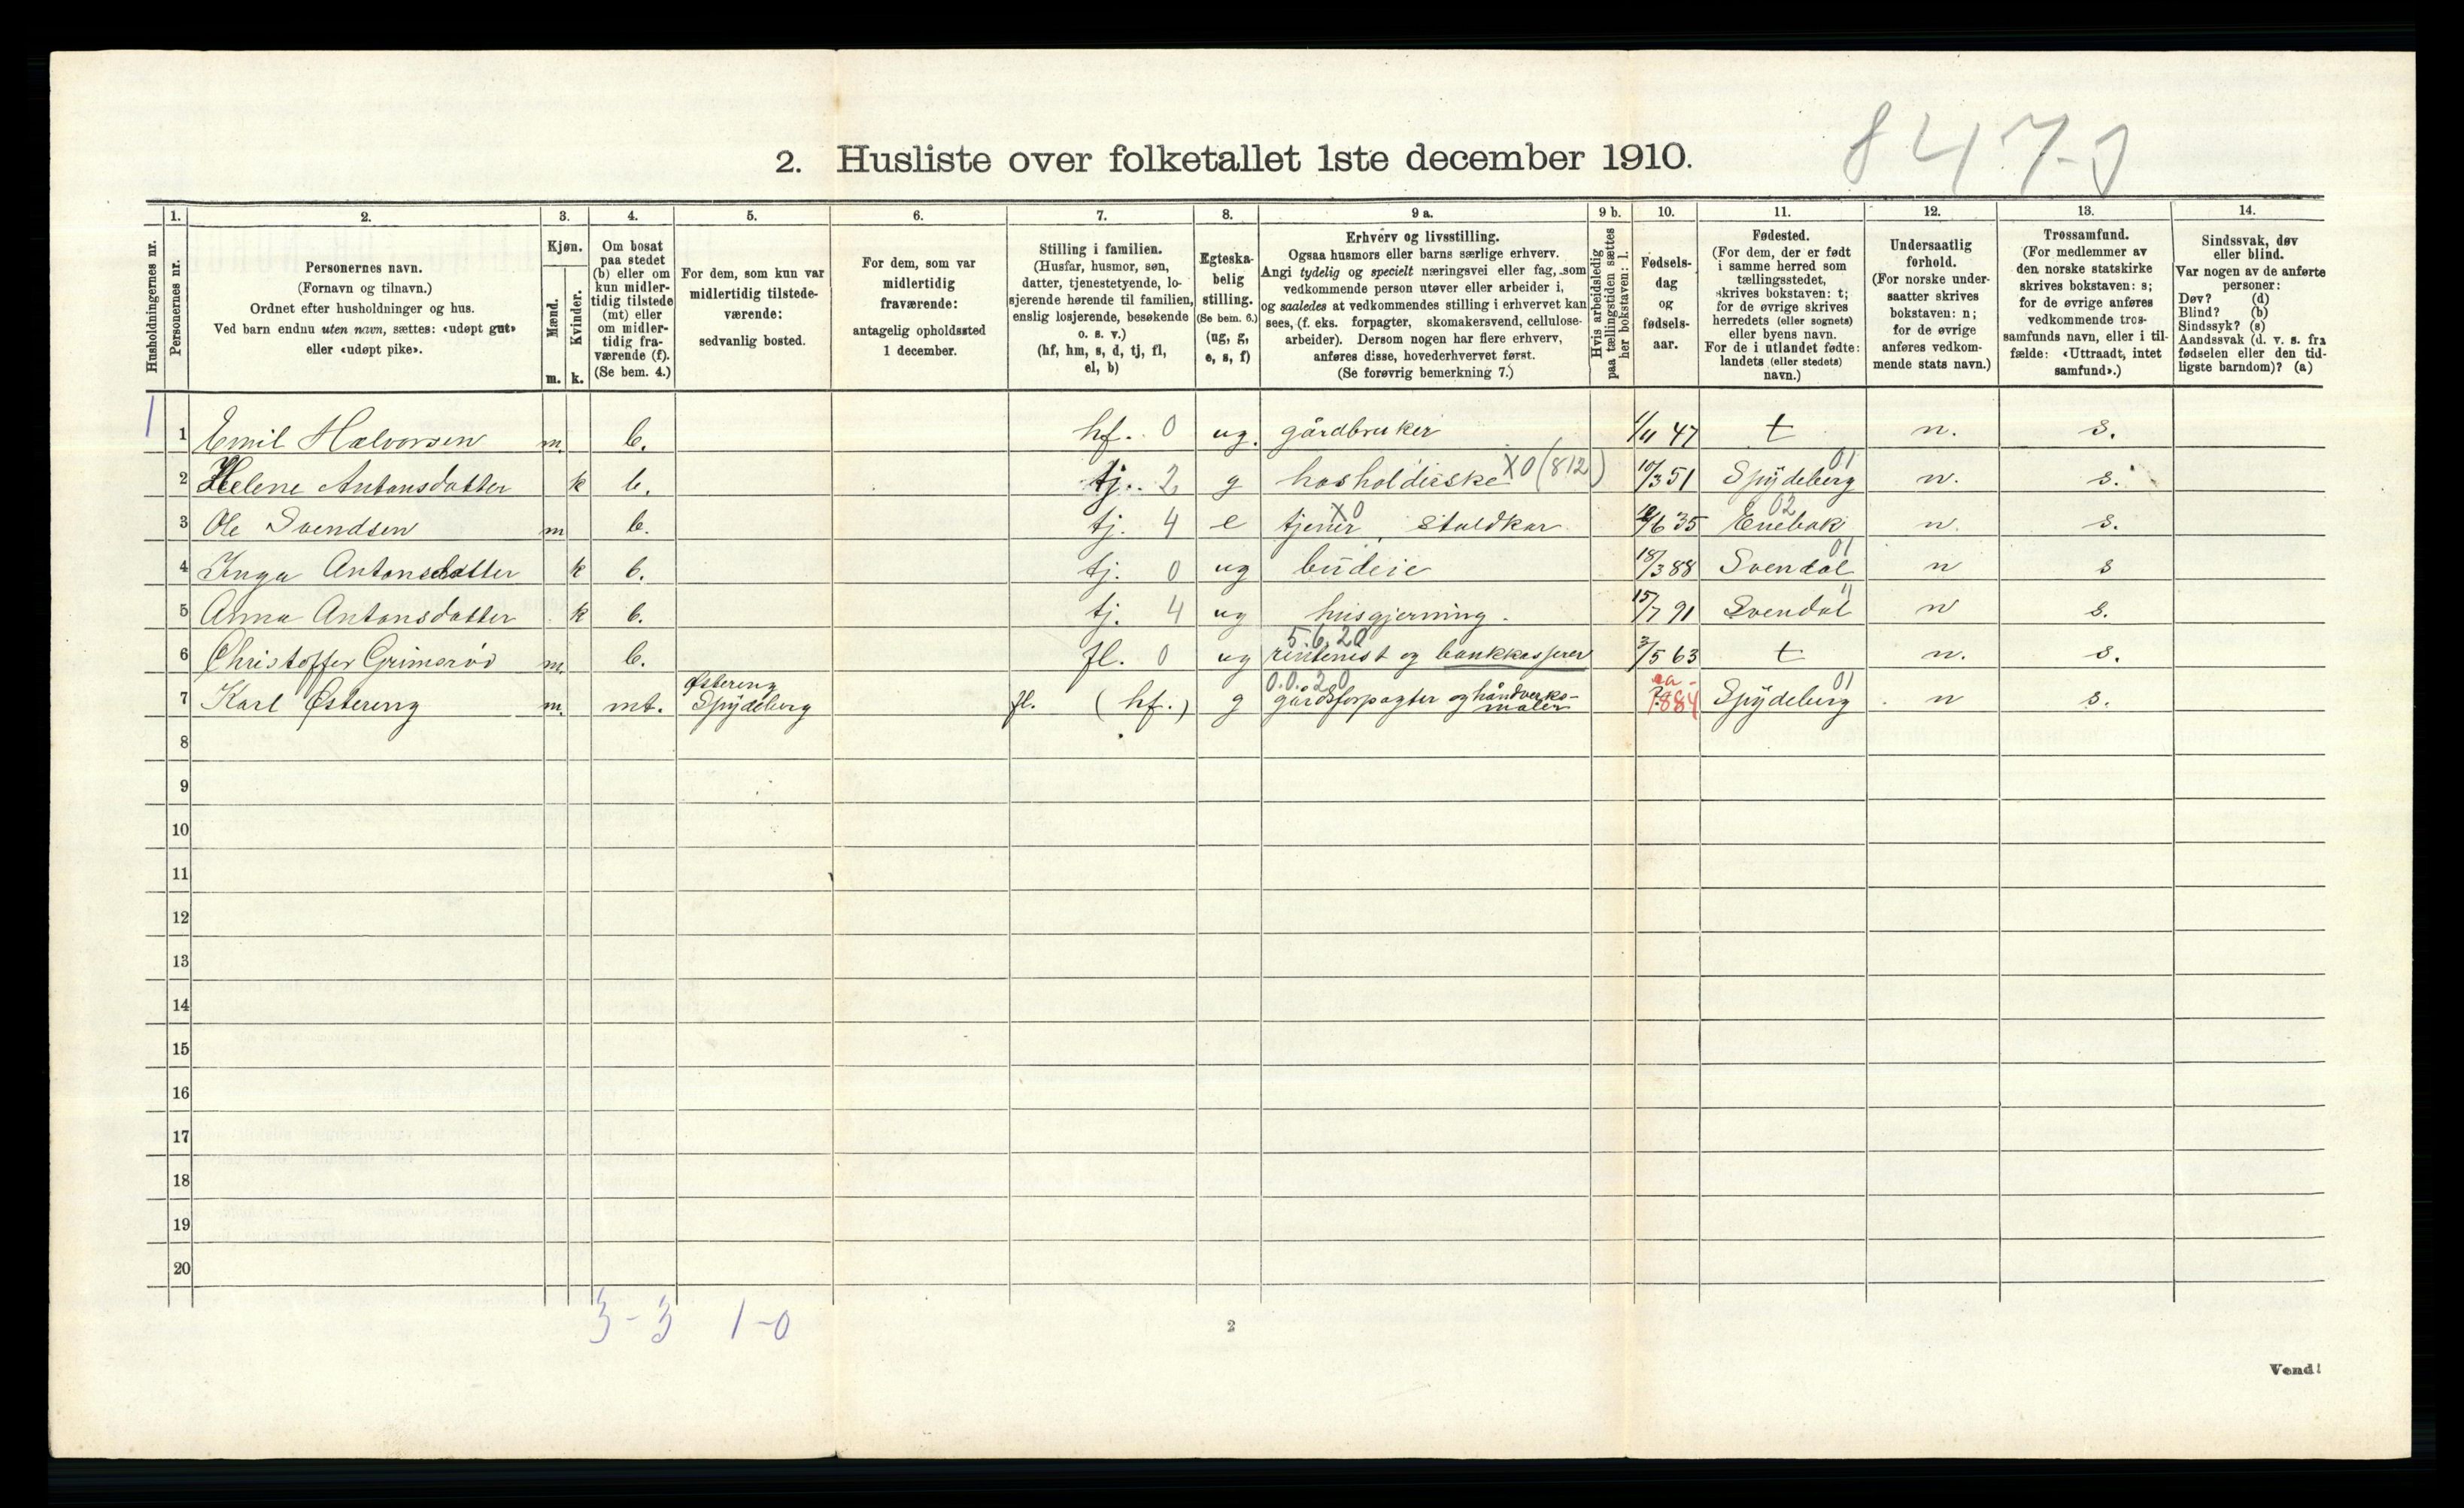 847-0
2. Husliste over folketallet 1ste december 1910.
Husholdningernes nr.
1.
Personernes nr.
2.
Personernes navn.
(Fornavn og tilnavn.)
Ordnet efter husholdninger og hus.
Ved barn endnu uten navn, sættes: «udøpt gut»
eller «udøpt pike».
3.
Kjøn.
Mænd.
Kvinder.
m. k.
4.
Om bosat
paa stedet
(b) eller om
kun midler-
tidig tilstede
(mt) eller
om midler-
tidig fra-
værende (f).
(Se bem. 4.)
5.
For dem, som kun var
midlertidig tilstede-
værende:
sedvanlig bosted.
6.
For dem, som var
midlertidig
fraværende:
antagelig opholdssted
1 december.
7.
Stilling i familien.
(Husfar, husmor, søn,
datter, tjenestetyende, lo-
sjerende hørende til familien,
enslig losjerende, besøkende
o. s. v.)
(hf, hm, s, d, tj, fl,
el, b)
8.
Egteska-
belig
stilling.
(Se bem. 6.)
(ug, g,
e, s, f)
9 a.
Erhverv og livsstilling.
Ogsaa husmors eller barns særlige erhverv.
Angi tydelig og specielt næringsvei eller fag, som
vedkommende person utøver eller arbeider i,
og saaledes at vedkommendes stilling i erhvervet kan
sees, (f. eks. forpagter, skomakersvend, cellulose-
arbeider). Dersom nogen har flere erhverv,
anføres disse, hovederhvervet først.
(Se forøvrig bemerkning 7.)
9 b.
Hvis arbeidsledig
paa tællingstiden sættes
her bokstaven: l.
10.
Fødsels-
dag
og
fødsels-
aar.
11.
Fødested.
(For dem, der er født
i samme herred som
tællingsstedet,
skrives bokstaven: t;
for de øvrige skrives
herredets (eller sognets)
eller byens navn.
For de i utlandet fødte:
landets (eller stedets)
navn.)
12.
Undersaatlig
forhold.
(For norske under-
saatter skrives
bokstaven: n;
for de øvrige
anføres vedkom-
mende stats navn.)
13.
Trossamfund.
(For medlemmer av
den norske statskirke
skrives bokstaven: s;
for de øvrige anføres
vedkommende tros-
samfunds navn, eller i til-
fælde: «Uttraadt, intet
samfund».)
14.
Sindssvak, døv
eller blind.
Var nogen av de anførte
personer:
Døv? (d)
Blind? (b)
Sindssyk? (s)
Aandssvak (d. v. s. fra
fødselen eller den tid-
ligste barndom)? (a)
1 1 Emil Halvorsen m. b. hf. 0 ug. gårdbruker /11 47 t n. s.
2 Helene Antonsdatter k b. tj. 2 g hosholderske X0 (812) 10/3 51 Spydeberg 01 n. s.
3 Ole Svendsen m b. tj. 4 e tjener, staldkar X0 /6 35 Enebak 02 n. s.
4 Inga Antonsdatter k b. tj. 0 ug budeie 18/3 88 Svendal 01 n s
5 Anna Antonsdatter k b. tj. 4 ug husgjerning. 15/7 91 Svendal " n s.
6 Christoffer Grimsrød m. b. fl. 0 ug 5.6.20 rentenist og bankkasserer 3/5 63 t n. s.
7 Karl Østereng m. mt. Østereng Spydeberg fl. (hf.) g 0.0.20 gårdsforpagter og håndverks-maler ca. 1884 Spydeberg 01 n s.
8
9
10
11
12
13
14
15
16
17
18
19
20
3-3 1-0
2
Vend!